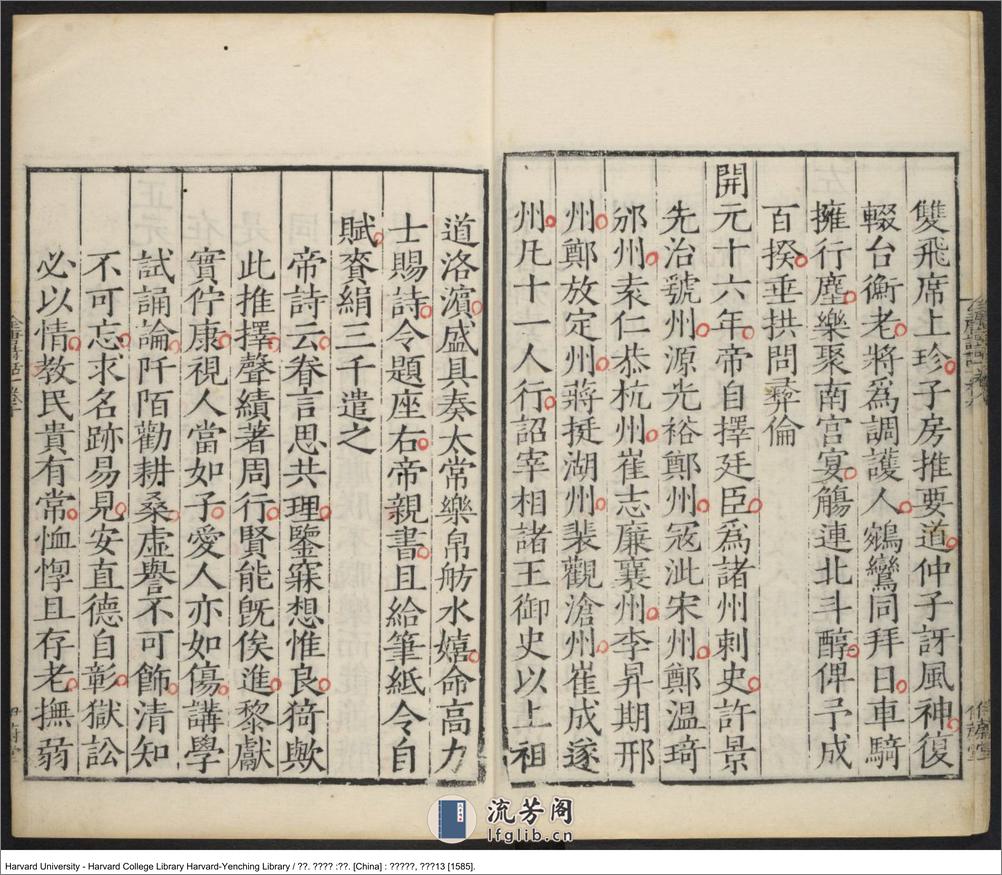 雙飛席上珍子房推要道仲子訝風神復
輟台衡老將爲調護人鵷鸞同拜日車騎
擁行塵樂聚南宮宴觴連北斗醇俾予成
百揆垂拱問彛倫
開元十六年帝自擇廷臣爲諸州刺史許景
先治虢州源光裕鄭州宼泚宋州鄭温琦
邠州袁仁恭杭州崔志廉襄州李昇期邢
州鄭放定州蔣挺湖州裴觀滄州崔成遂
州凡十一人行詔宰相諸王御史以上祖
道洛濵盛具奏太常樂帛舫水嬉命高力
士賜詩令題座右帝親書且給筆紙令自
賦賚絹三千遣之
帝詩云眷言思共理鑒寐想惟良猗歟
此推擇聲績著周行賢能旣俟進黎獻
實佇康視人當如子愛人亦如傷講學
試誦論阡陌勸耕桑虛譽不可飾清知
不可忘求名跡易見安直德自彰獄訟
必以情教民貴有常恤惸且存老撫弱
流芳阁
lfglib.cn
Harvard University - Harvard College Library Harvard-Yenching Library / ??. ???? :??. [China] : ?????, ???13 [1585].